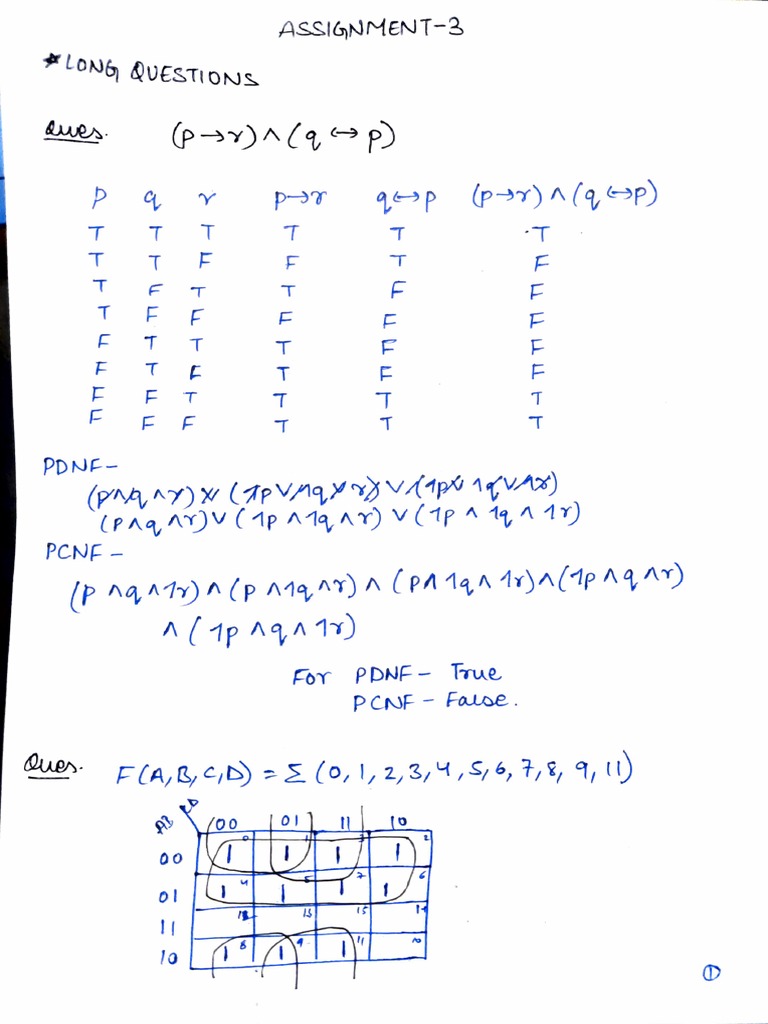 ASSIGNMENT-3
*LONG QUESTIONS
Ques. (p→r)∧(q↔p)
p q r p→r q↔p (p→r)∧(q↔p)
T T T T T T
T T F F T F
T F T T F F
T F F F F F
F T T T F F
F T F T F F
F F T T T T
F F F T T T
PDNF-
(p∧q∧r)∨(¬p∧¬q∧r)∨(¬p∧¬q∧¬r)
PCNF-
(p∧q∧¬r)∧(p∧¬q∧r)∧(p∧¬q∧¬r)∧(¬p∧q∧r)
∧(¬p∧q∧¬r)
For PDNF- True
PCNF- False.
Ques. F(A,B,C,D) = Σ(0,1,2,3,4,5,6,7,8,9,11)
AB CD 00 01 11 10
00 1 0 1 1 1 3 1 2
01 1 4 1 5 1 7 1 6
11 12 13 15 14
10 1 8 1 9 1 11 10
1